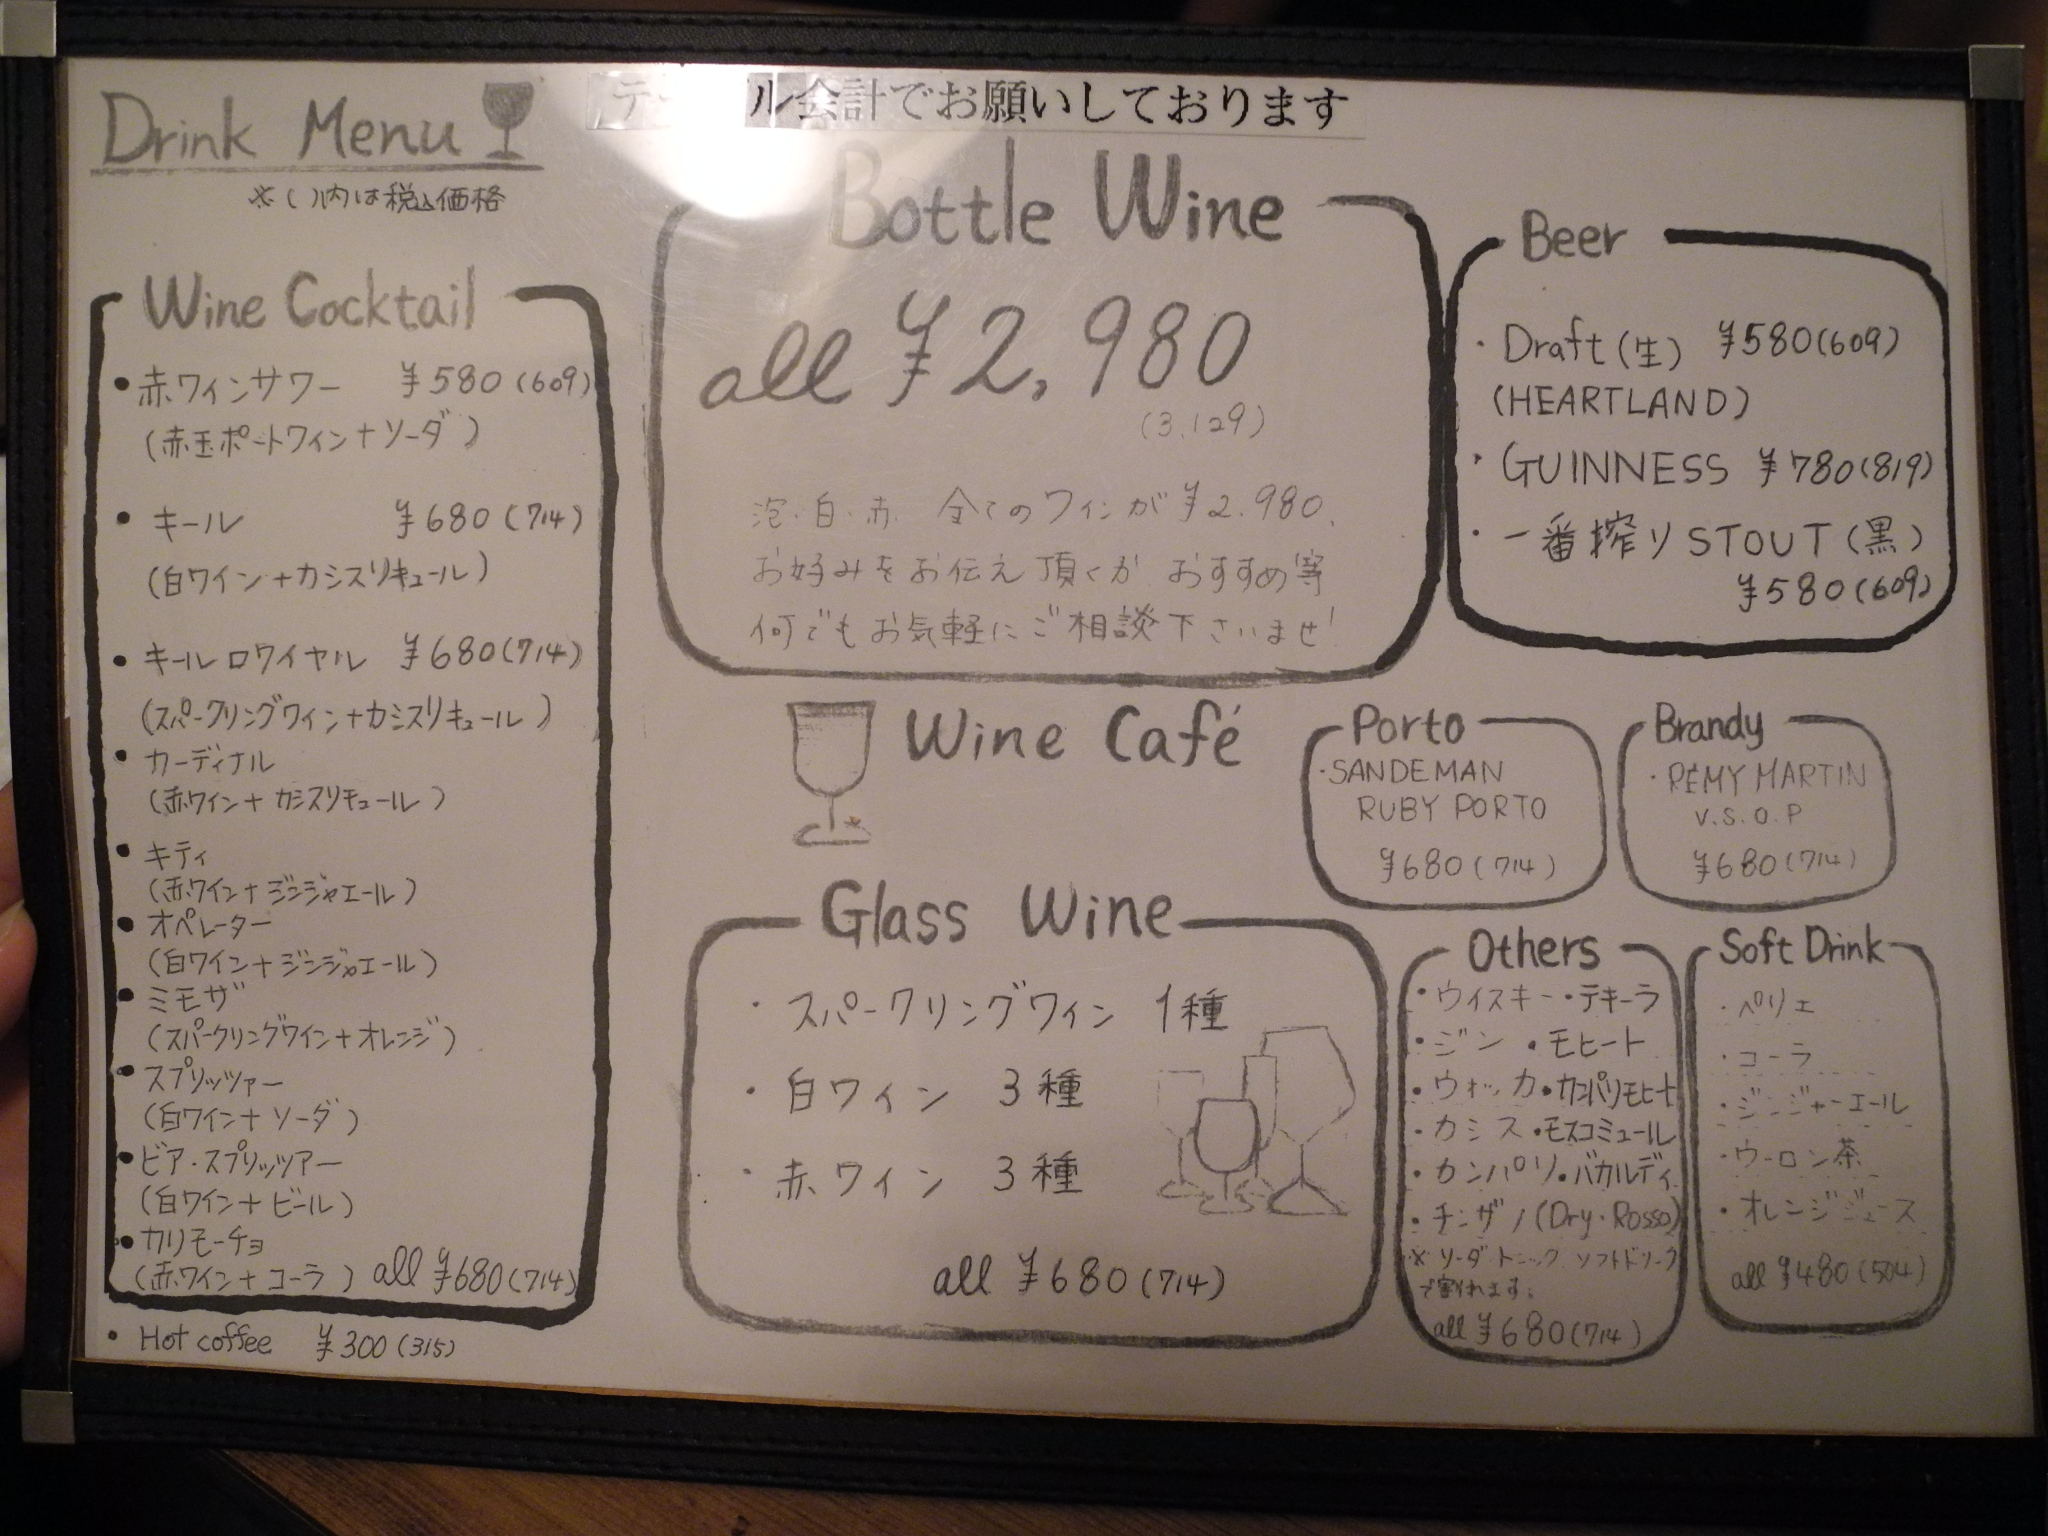 Drink Menu
※( )内は税込価格
テーブル会計でお願いしております
Wine Cocktail
・赤ワインサワー ¥580(609)
(赤玉ポートワイン+ソーダ)
・キール ¥680(714)
(白ワイン+カシスリキュール)
・キールロワイヤル ¥680(714)
(スパークリングワイン+カシスリキュール)
・カーディナル
(赤ワイン+カシスリキュール)
・キティ
(赤ワイン+ジンジャエール)
・オペレーター
(白ワイン+ジンジャエール)
・ミモザ
(スパークリングワイン+オレンジ)
・スプリッツァー
(白ワイン+ソーダ)
・ビア・スプリッツアー
(白ワイン+ビール)
・カリモーチョ
(赤ワイン+コーラ) all ¥680(714)
・Hot coffee ¥300(315)
Bottle Wine
all ¥2,980
(3,129)
泡・白・赤 全てのワインが¥2,980.
お好みをお伝え頂くか おすすめ等
何でもお気軽にご相談下さいませ!
Wine Café
Glass Wine
・スパークリングワイン 1種
・白ワイン 3種
・赤ワイン 3種
all ¥680(714)
Beer
・Draft(生) ¥580(609)
(HEARTLAND)
・GUINNESS ¥780(819)
・一番搾りSTOUT(黒)
¥580(609)
Porto
・SANDEMAN
RUBY PORTO
¥680(714)
Brandy
・RÉMY MARTIN
V.S.O.P
¥680(714)
Others
・ウイスキー・テキーラ
・ジン ・モヒート
・ウォッカ・カンパリモヒート
・カシス・モスコミュール
・カンパリ・バカルディ
・チンザノ(Dry・Rosso)
※ソーダ トニック ソフトドリンク
で割れます。
all ¥680(714)
Soft Drink
・ペリエ
・コーラ
・ジンジャーエール
・ウーロン茶
・オレンジジュース
all ¥480(504)